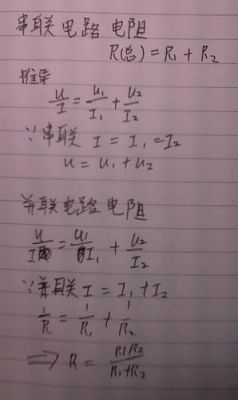 串联电路电阻
R(总) = R₁ + R₂
推导
U/I = U₁/I₁ + U₂/I₂
∵串联 I = I₁ = I₂
U = U₁ + U₂
并联电路电阻
U/I = U₁/I₁ + U₂/I₂
∵并联 I = I₁ + I₂
1/R = 1/R₁ + 1/R₂
⇒ R = R₁R₂/R₁+R₂